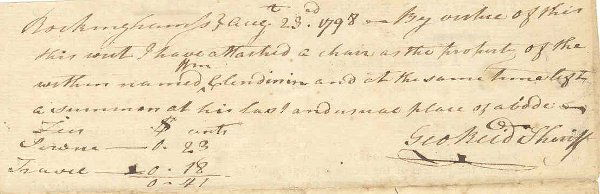 Rockingham ss Augt 23rd 1798 — By virtue of this
this writ I have attached a chair as the property of the
within named Wm Clendinin and at the same time left
a summon at his last and usual place of abode —
Fees $ cents
Service — 0. 23
Travel — 0. 18
0. 41
Geo Reid Sheriff